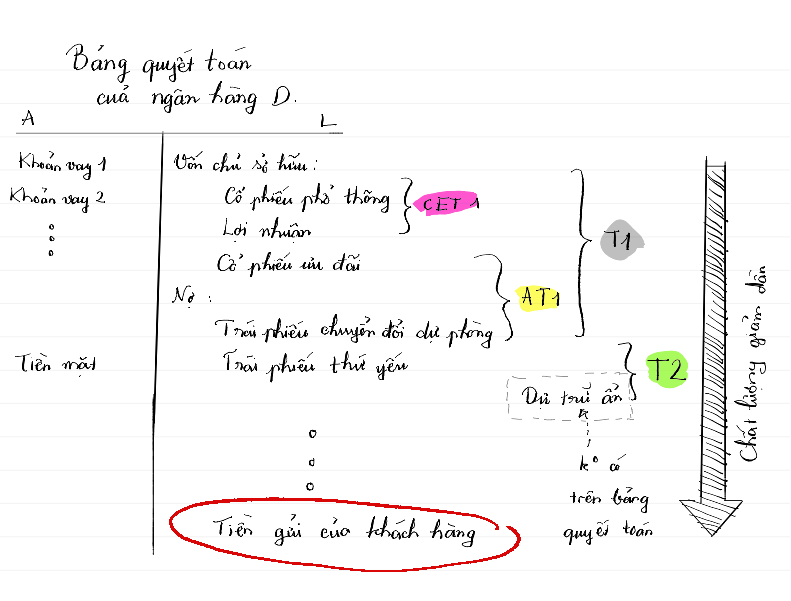 Bảng quyết toán
cuả ngân hàng D.
A
L
Khoản vay 1
Khoản vay 2
Tiền mặt
Vốn chủ sở hữu:
Cổ phiếu phổ thông
Lợi nhuận
Cổ phiếu ưu đãi
Nợ:
Trái phiếu chuyển đổi dự phòng
Trái phiếu thứ yếu
Tiền gửi của khách hàng
CET 1
AT1
T1
T2
Dự trữ ẩn
k° có
trên bảng
quyết toán
Chất lượng giảm dần